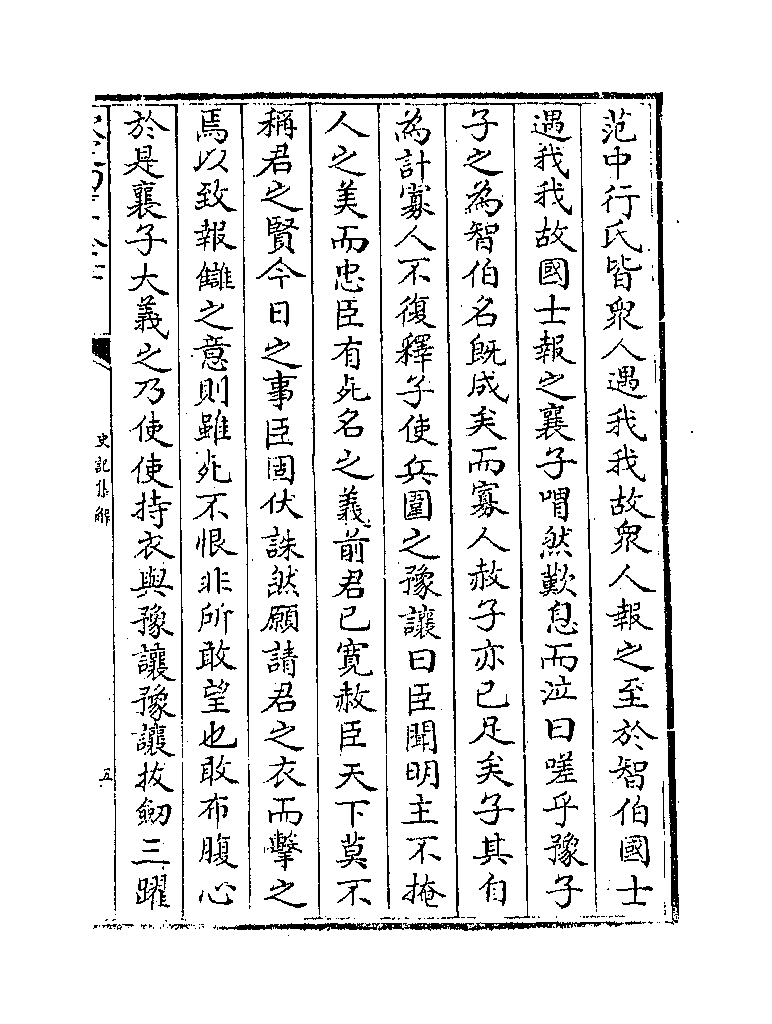 范中行氏皆衆人遇我我故衆人報之至於智伯國士
遇我我故國士報之襄子喟然歎息而泣曰嗟乎豫子
子之為智伯名既成矣而寡人赦子亦已足矣子其自
為計寡人不復釋子使兵圍之豫讓曰臣聞明主不掩
人之美而忠臣有死名之義前君已寛赦臣天下莫不
稱君之賢今日之事臣固伏誅然願請君之衣而擊之
焉以致報讎之意則雖死不恨非所敢望也敢布腹心
於是襄子大義之乃使使持衣與豫讓豫讓拔劒三躍
史記集解
五